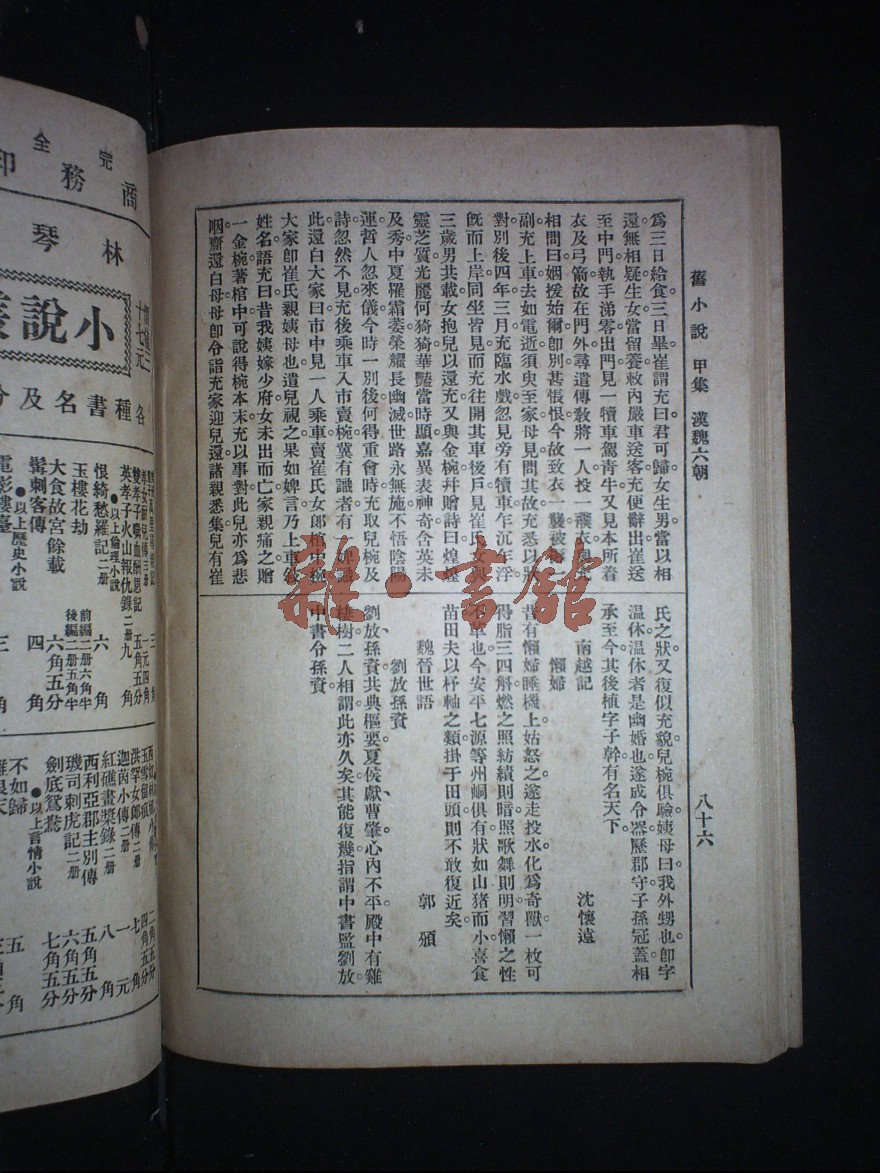 舊小說 甲集 漢魏六朝
八十六
爲三日給食三日畢崔謂充曰君可歸女生男當以相
還無相疑生女當留養敕內嚴車送客充便辭出崔送
至中門執手涕零出門見一犢車駕靑牛又見本所着
衣及弓箭故在門外尋遣傳敎將一人投一襆衣與充
相問曰姻援始爾卽別甚悵恨今故致衣一襲被褥
副充上車去如電逝須臾至家母見問其故充悉以狀
對別後四年三月充臨水戲忽見旁有犢車乍沉乍浮
旣而上岸同坐皆見而充往開其車後戶見崔氏女與
三歲男共載女抱兒以還充又與金椀幷贈詩曰煌煌
靈芝質光麗何猗猗華豔當時顯嘉異表神奇含英未
及秀中夏罹霜萎榮耀長幽滅世路永無施不悟陰陽
運哲人忽來儀今時一別後何得重會時充取兒椀及
詩忽然不見充後乘車入市賣椀冀有識者有一婢識
此還白大家曰市中見一人乘車賣崔氏女郞棺中椀
大家卽崔氏親姨母也遣兒視之果如婢言乃上車敍
姓名語充曰昔我姨嫁少府女未出而亡家親痛之贈
一金椀著棺中可說得椀本末充以事對此兒亦爲悲
咽齎還白母母卽令詣充家迎兒還諸親悉集兒有崔
氏之狀又復似充貌兒椀俱驗姨母曰我外甥也卽字
温休温休者是幽婚也遂成令器歷郡守子孫冠蓋相
承至今其後植字子幹有名天下
南越記 沈懷遠
懶婦
昔有懶婦睡機上姑怒之遂走投水化爲奇獸一枚可
得脂三四斛燃之照紡績則暗照歌舞則明習懶之性
不革也今安平七源等州峒俱有狀如山猪而小喜食
苗田夫以杼軸之類掛于田頭則不敢復近矣
魏晉世語 郭頒
劉放孫資
劉放孫資共典樞要夏侯獻曹肇心內不平殿中有雞
棲樹二人相謂此亦久矣其能復幾指謂中書監劉放
中書令孫資
雜·書館
完全
商務印
林琴
小說叢
十七元
各種書名及分
雙孝子噀血酬恩記 二册 五角五分
英孝子火山報仇錄 二册 九角
●以上倫理小說
恨綺愁羅記 二册 六角
玉樓花劫 前編二册六角半 後編二册五角半
大食故宮餘載 六角五分
髯刺客傳 四角
●以上歷史小說
電影樓臺 三角
玉雪留痕
洪罕女郞傳 二册
迦茵小傳 二册
紅礁畫槳錄 二册
西利亞郡主別傳
璣司刺虎記 二册
劍底鴛鴦
●以上言情小說
不如歸